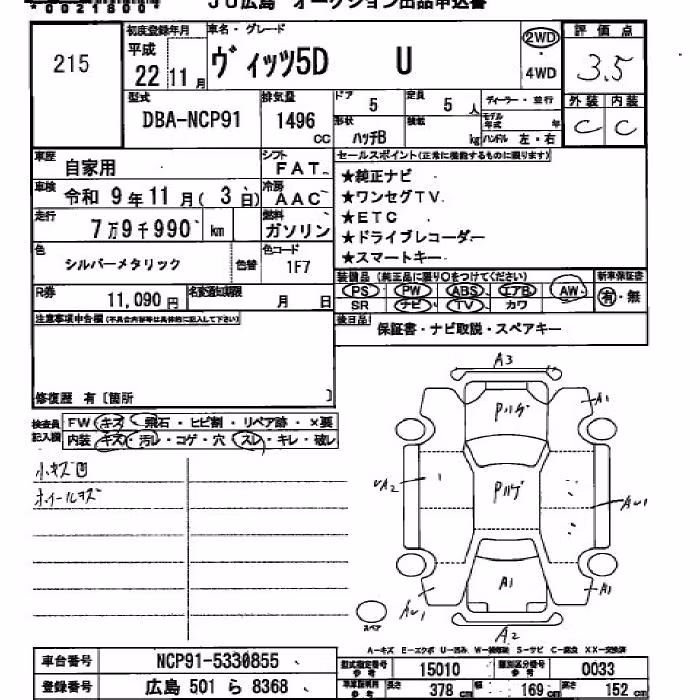 *00218004*
JU広島 オークション出品申込書
215
初度登録年月
平成
22 11 月
車名・グレード
ヴィッツ5D U
2WD
・
4WD
評価点
3.5
外装 内装
C C
型式
DBA-NCP91
排気量
1496
CC
ドア 5
定員 5 人
ディーラー・並行
形状
ハッチB
積載 kg
モデル年式 年
ハンドル 左・右
車歴 自家用
シフト FAT
車検 令和 9 年 11 月( 3 日)
冷房 AAC
走行 7 万 9 千 990 km
燃料 ガソリン
色 シルバーメタリック
色替
色コード 1F7
R券 11,090 円
名変通知期限 月 日
セールスポイント(正常に機能するものに限ります)
★純正ナビ
★ワンセグTV
★ETC
★ドライブレコーダー
★スマートキー
装備品(純正品に限り○をつけてください)
新車保証書
PS PW ABS エアB AW
SR ナビ TV カワ
有・無
後日品 保証書・ナビ取説・スペアキー
注意事項申告欄(不具合内容等は具体的に記入して下さい)
修復歴 有〔箇所 〕
検査員記入欄
FW キズ・飛石・ヒビ割・リペア跡・×要
内装 キズ・汚レ・コゲ・穴・スレ・キレ・破レ
小キズ凹
ホイールキズ
A3
A1
Pハゲ
UA2
Pハゲ
AU1
A1
AU1
A1
A2
スペア
A-キズ E-エクボ U-凹み W-補修跡 S-サビ C-腐食 XX-交換済
車台番号 NCP91-5330855
登録番号 広島 501 ら 8368
型式指定番号 参考 15010
類別区分番号 参考 0033
車車検証内 参考 長さ 378 cm 幅 169 cm 高さ 152 cm